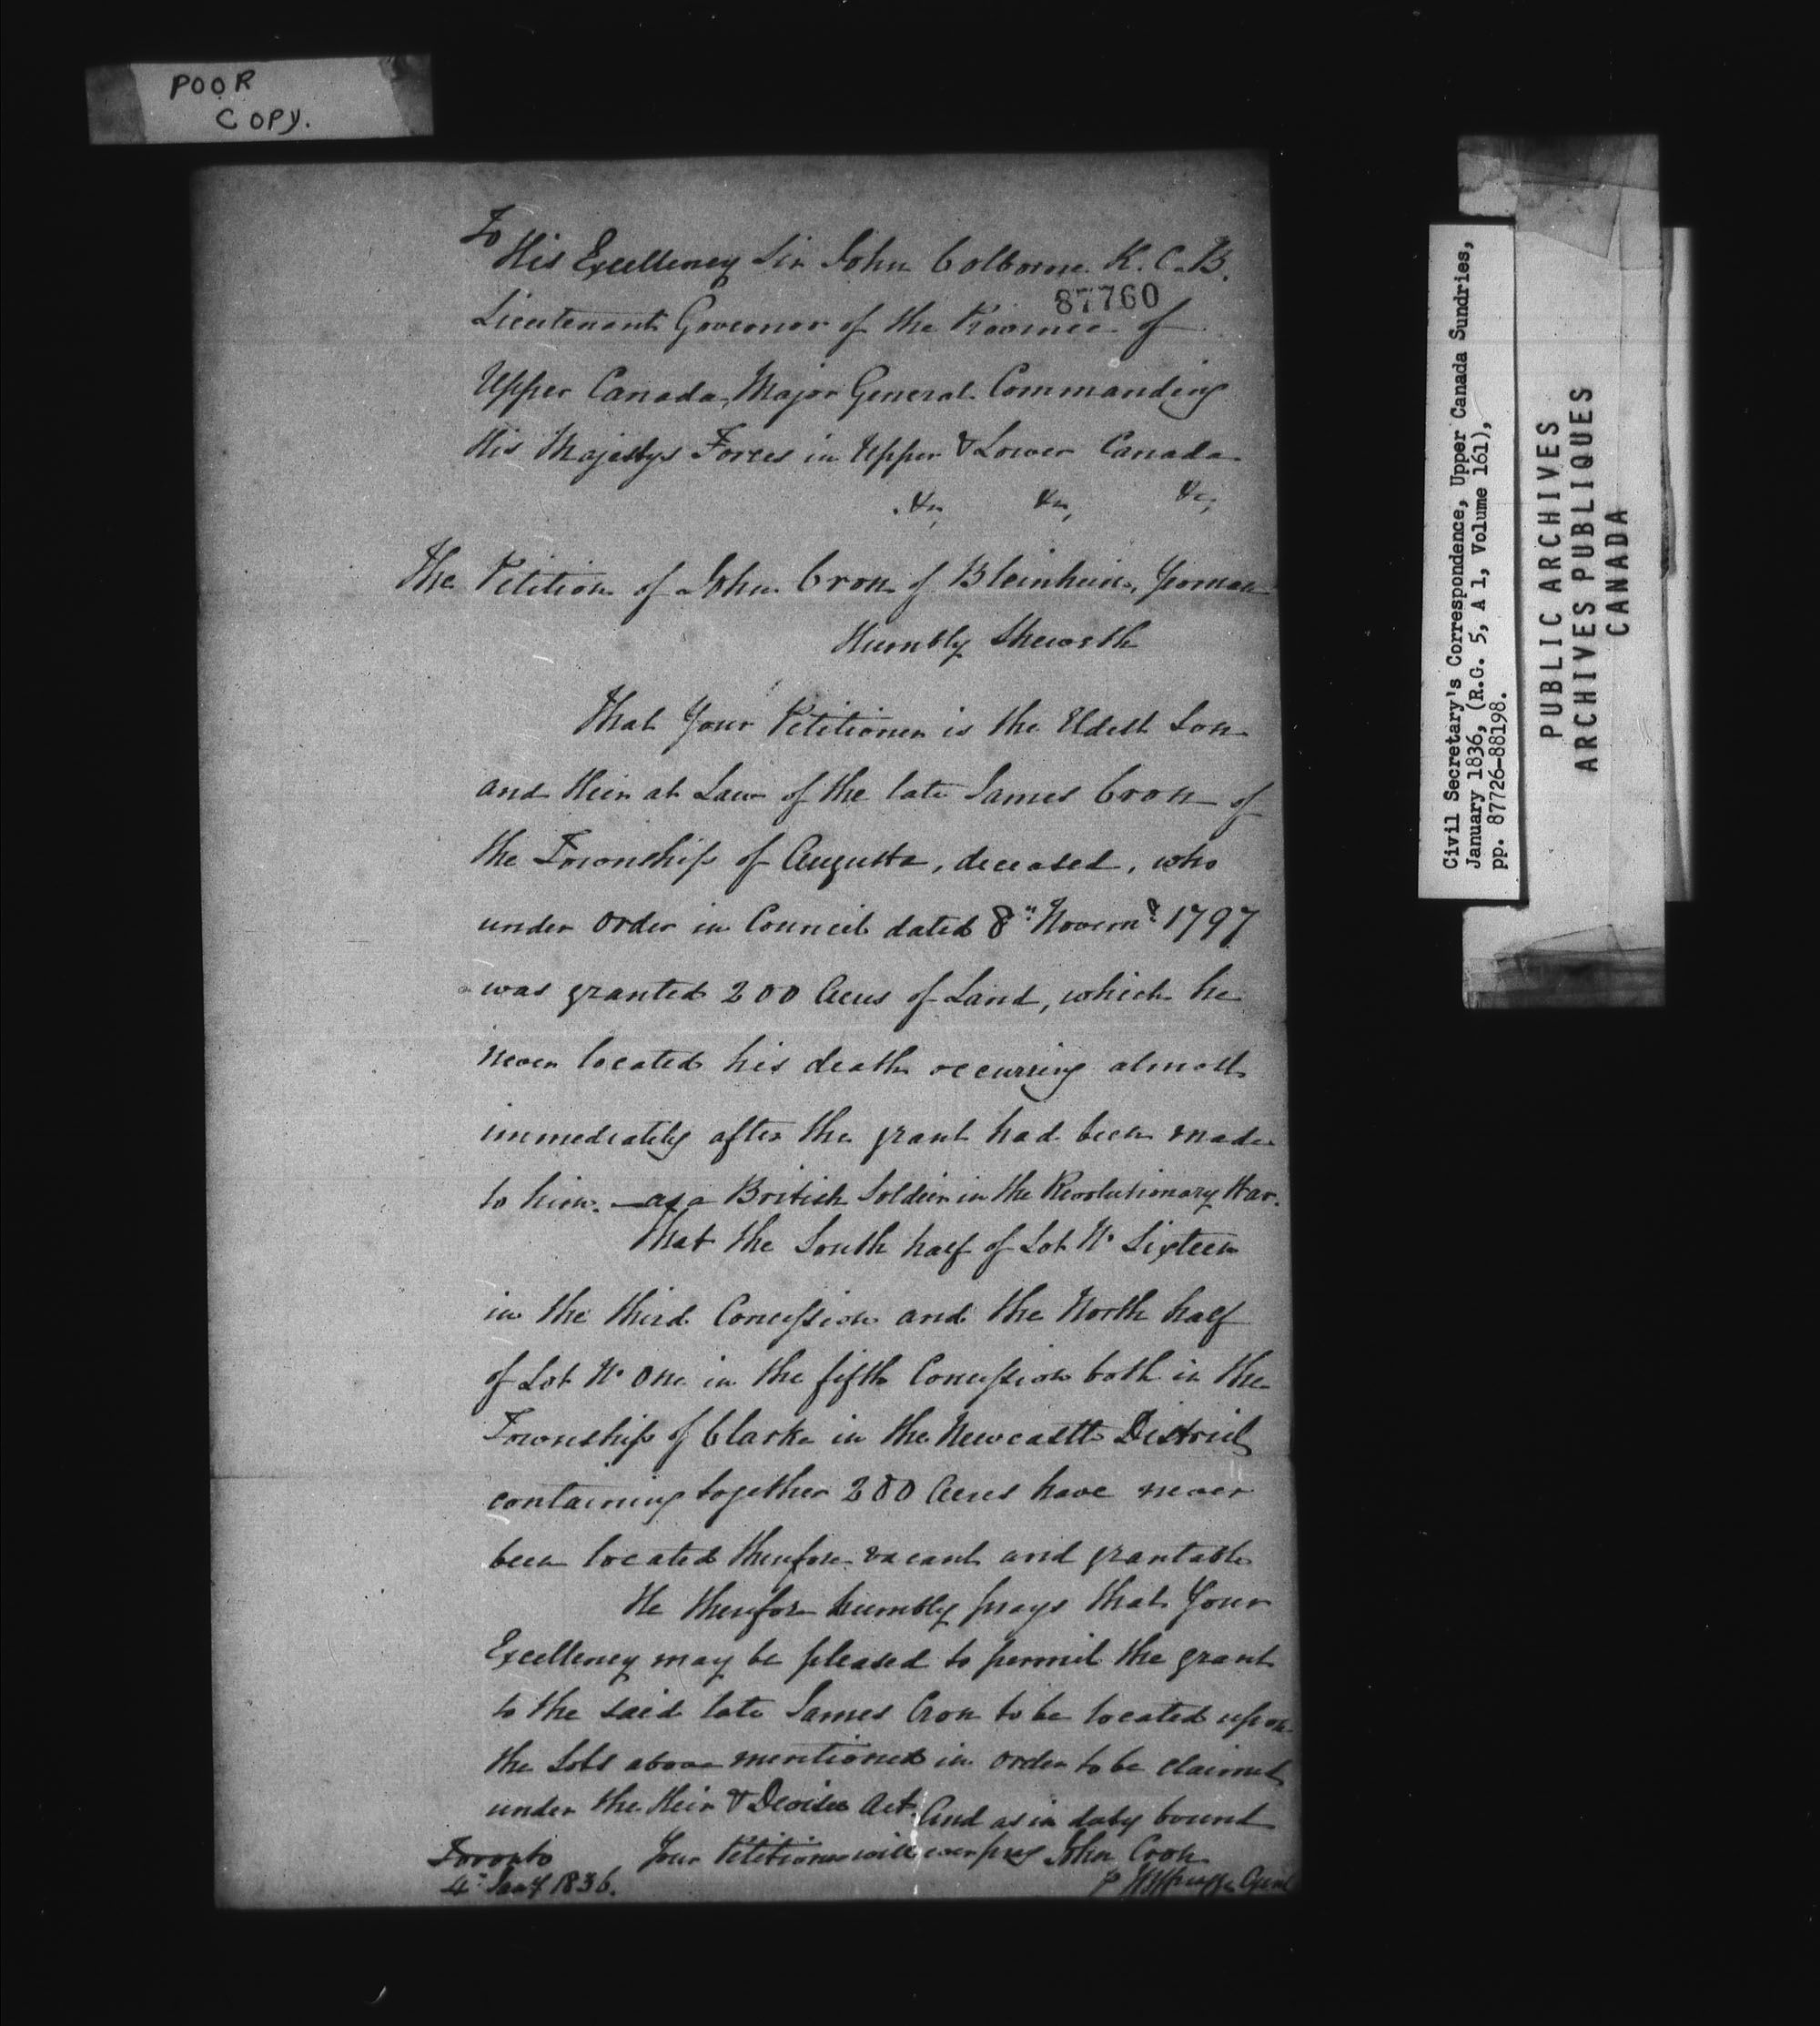 POOR
COPY.
To
His Excellency Sir John Colborne K.C.B.
87760
Lieutenant Governor of the Province of
Upper Canada, Major General Commanding
His Majestys Forces in Upper & Lower Canada
&c, &c, &c,
The Petition of John Cron of Bleinheim, Yeoman
Humbly Sheweth
That Your Petitioner is the Eldest Son
and Heir at Law of the late James Cron of
the Township of Augusta, deceased, who
under order in Council dated 8" Novemr 1797
was granted 200 Acres of Land, which he
never located his death occurring almost
immediately after the grant had been made
to him. — as a British Soldier in the Revolutionary War.
That the South half of Lot No Sixteen
in the third Concession and the North half
of Lot No One in the fifth Concession both in the
Township of Clarke in the Newcastle District
containing together 200 Acres have never
been located therefore vacant and grantable
He therefore humbly prays that Your
Excellency may be pleased to permit the grant
to the said late James Cron to be located upon
the Lots above mentioned in order to be claimed
under the Heir & Devisee Act. And as in duty bound
Your Petitioner will ever pray John Cron
Toronto
4" Jany 1836.
Agent
Civil Secretary's Correspondence, Upper Canada Sundries,
January 1836, (R.G. 5, A 1, Volume 161),
pp. 87726-88198.
PUBLIC ARCHIVES
ARCHIVES PUBLIQUES
CANADA